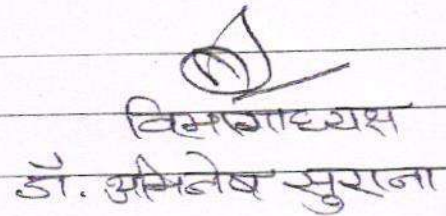 विभागाध्यक्ष
डॉ. अभिनेष सुराना